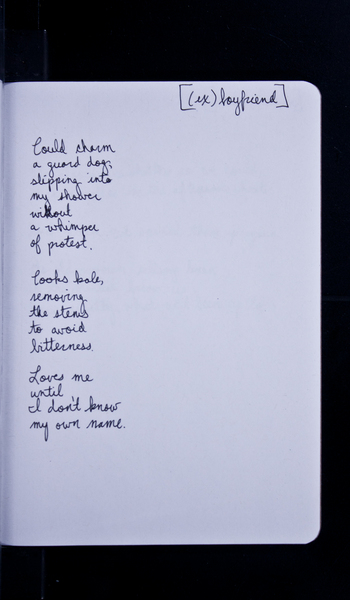 [(ex) boyfriend]
Could charm
a guard dog,
slipping into
my shower
without
a whimper
of protest.
Cooks kale,
removing
the stems
to avoid
bitterness.
Loves me
until
I don't know
my own name.